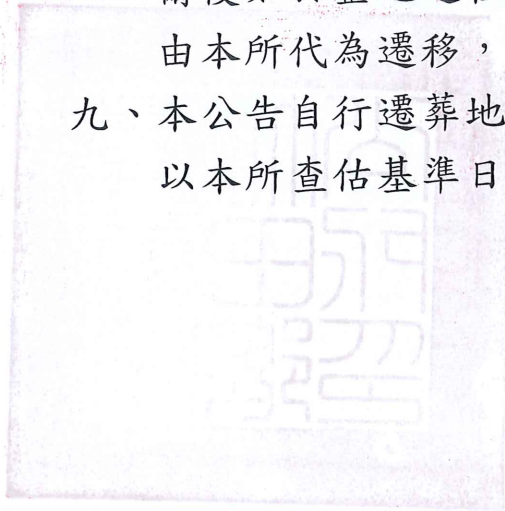 由本所代為遷移，
九、本公告自行遷葬地
以本所查估基準日